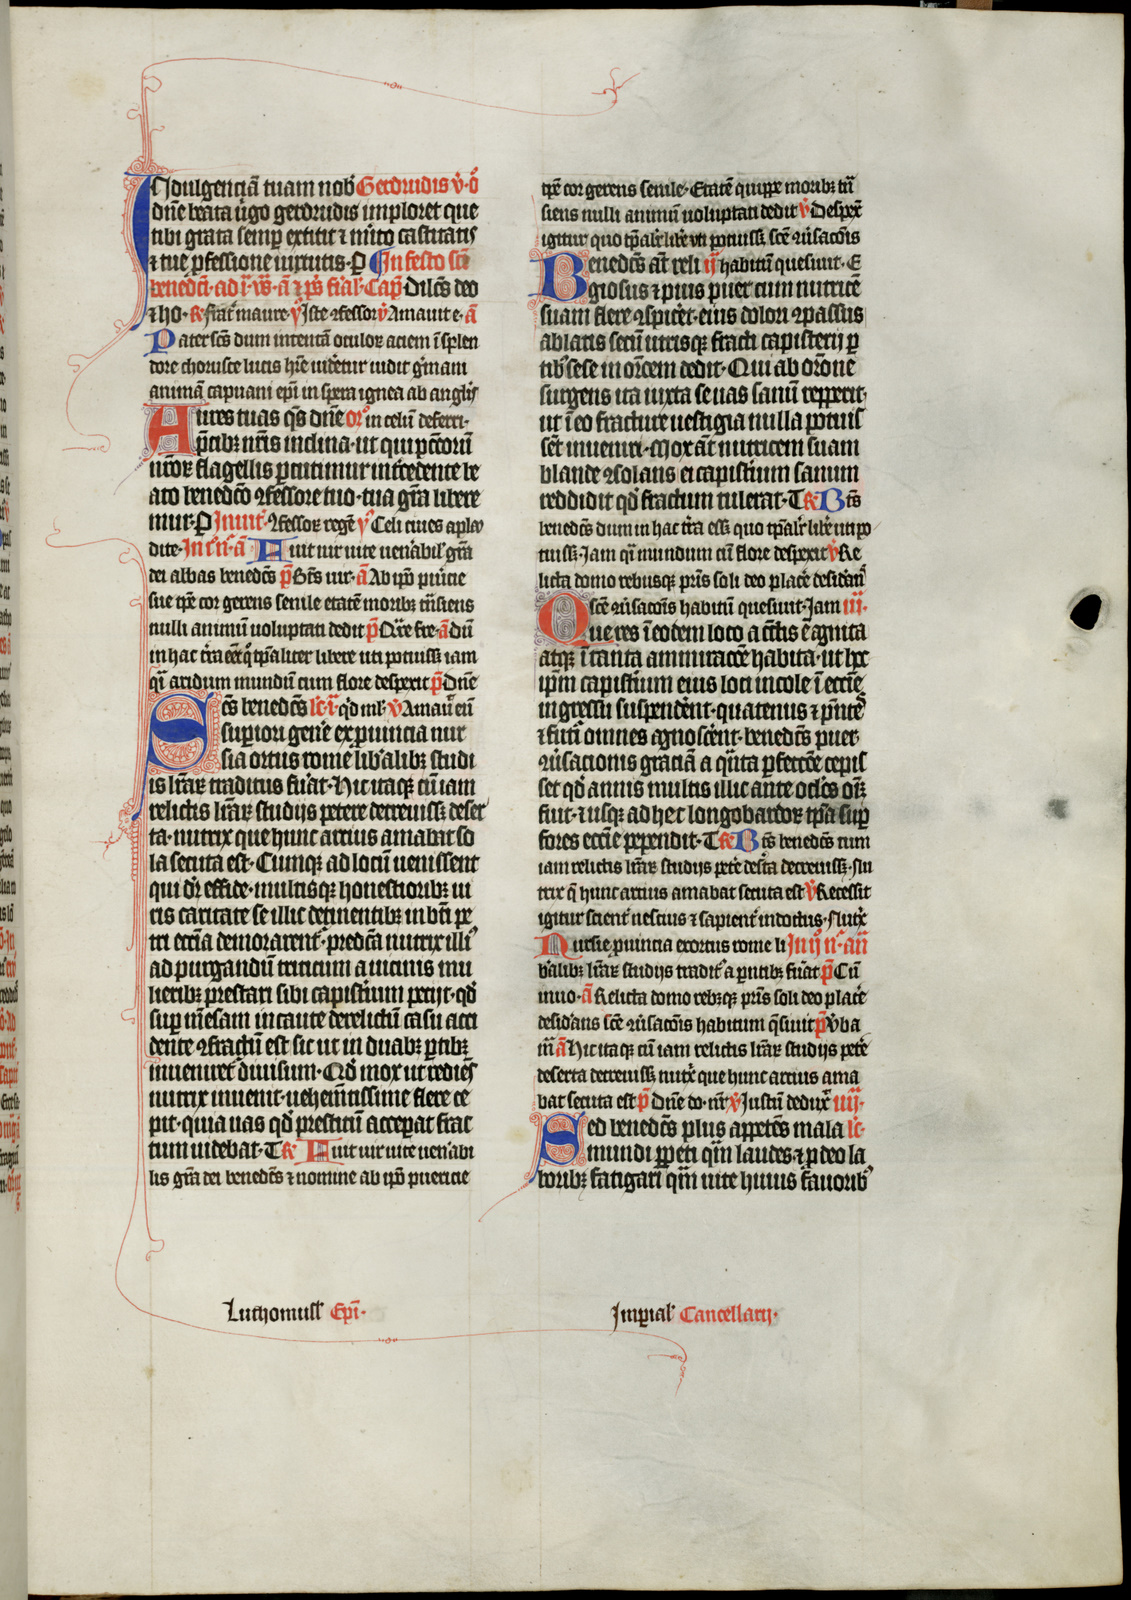 Indulgenciā tuam nob̄ Gerdrudis v̄. o̅
dn̄e beata ṽgo gerdrudis imploret que
tibi grata semp̱ extitit ⁊ mĩto castitatis
⁊ tue ꝓfessione uirtutis. P In festo sc̄i
benedc̄i. ad
Dilc̄s deo
⁊ ho. frat̄ maure. Iste ꝯfessor Amauit e. a̅
Pater sc̄s dum intentā oculoꝝ aciem ī splen
dore chorusce lucis hr̄e uidet̄ur uidit gm̄ani
animā capuani ep̄i in spera ignea ab angľis
Aures tuas qs̄ dn̄e or̄o in celū deferri.
p̄cibꝫ nr̄is inclina. ut qui pc̄orū
nr̄oꝝ flagellis ꝑcutimur intc̄edente be
ato benedc̄o ꝯfessore tuo. tua gr̄a libere
mur. P Inuit̄. ꝯfessoꝝ regē ps̄ Celi ciues aplau
dite. In Fuit uir uite ueñabiľ gr̄a
dei albas benedc̄s p̄ Bt̄s uir. a̅ Ab ip̄o puericie
sue tp̄e cor gerens senile etatē moribꝫ tn̄siens
nulli animū uoluptati dedit p̄ Q̄re fre. a̅ dū
in hac tr̄a eēt q̊ tp̄aliter libere uti potuissꝫ iam
q̄i aridum mundū cum flore despexit p̄ Dn̄e
Sc̄s benedc̄s lc̄. i. qd̄ mľ. v̄ Amauit̄ eū
superiori geñe ex ꝓuincia nur
sia ortus rome lib̄alibꝫ studi
is lr̄aꝝ traditus fūat. Hic itaqꝫ cū iam
relictis lr̄aꝝ studijs petere decreuissꝫ deser
ta. nutrix que hunc arcius amabat so
la secuta est. Cumqꝫ ad locū uenissent
qui dr̄ effide. multisqꝫ honestioribꝫ ui
ris caritate se illic detinentibꝫ in bt̄i pe
tri ecc̄ia demorarent̄. predc̄a nutrix illi᷒
ad purgandū triticum a uicinis mu
lieribꝫ prestari sibi capist̄ium petijt. qd̄
sup̱ mēsam incaute derelictū casu acci
dente ꝯfractū est sic ut in duabꝫ ꝑtibꝫ
inueniret̄ diuisum. Qd̄ mox ut rediēs
nutrix inuenit. uehemētissime flere ce
pit. quia uas qd̄ prestitū acceperat frac
tum uidebat. T ℟ Fuit uir uite ueñabi
lis gr̄a dei benedc̄s ⁊ nomine ab ip̄o puericie
tp̄e cor gerens senile. Etatē quippe moribꝫ tr̄
siens nulli animū uoluptati dedit v̄ Despex̄
igitur quo tp̄aľr libe uti potuissꝫ sc̄e ꝯūsac̄ois
Benedc̄s at̄ reli ij habitū quesiuit. E
giosus ⁊ pius puer cum nutricē
suam flere ꝯspicēt. eius dolori ꝯpassus
ablatis secū utrisqꝫ fracti capisterij ꝑ
tib᷒ sese in or̄oēm dedit. Qui ab or̄one
surgens ita iuxta se uas sanū repperit.
ut ī eo fracture uestigia nulla potuis
set̄ inueniri. Mox at̄ nutricem suam
blande ꝯsolans ei capist̄ium sanum
reddidit qd̄ fractum tulerat. T ℟ Bt̄s
benedc̄s dum in hac tr̄a essꝫ quo tp̄aľr libē uti po
tuissꝫ. Iam q̄i mundum cū flore despexit v̄ Re
licta domo rebusqꝫ pr̄is soli deo placē desid̄ans
sc̄e ꝯūsac̄ois habitū quesiuit. Iam iij.
Que res ī eodem loco a cūctis ē agnita
atqꝫ ī tanta ammiracōe habita. ut hc̄
ip̄m capist̄ium eius loci incole ī ecc̄ie
ingressu suspendēnt. quatenus ⁊ p̄ntes
⁊ futūi omnes agnoscēnt. benedc̄s puer
ꝯūsacionis graciam a q̄nta ꝑfecc̄oe cepis
set qd̄ annis multis illic ante oclo̅s oīm̄
fuit. ⁊ usqꝫ ad hec longobardoꝝ tp̄a sup̱
fores ecc̄ie pependit. T ℟ Bt̄s benedc̄s cum
iam relictis lr̄aꝝ studijs petē desta decreuissꝫ. Nu
trix q̄ hunc arcius amabat secuta est v̄ Recessit
igitur scient̄ nescius ⁊ sapient̄ indoctus. Nutx̄
Nursie ꝓuincia exortus rome li In ij n̄. an̄
b̄alibꝫ lr̄aꝝ studijs tradit᷒ a ꝑntibꝫ fūat p̄ Cū
inuo. a̅ Relicta domo rebꝫqꝫ pr̄is soli deo placē
desid̄ans sc̄e ꝯūsac̄ois habitum q̄siuit p̄ V̄ba
m̄ a̅ Hic itaqꝫ cū iam relictis lr̄aꝝ studijs petē
deserta decreuissꝫ nutx̄ que hunc arcius ama
bat secuta est p̄ Dn̄e do. nr̄ v̄ Iustū deduxͭ iiij.
Sed benedc̄s plus appetēs mala lc̄.
mundi ꝑpeti qm̄ laudes. ⁊ ꝓ deo la
boribꝫ fatigari qm̄ uite huius fauorib᷒
Luthomusľ Ep̄i.
Imp̱ial᷒ Cancellarij.